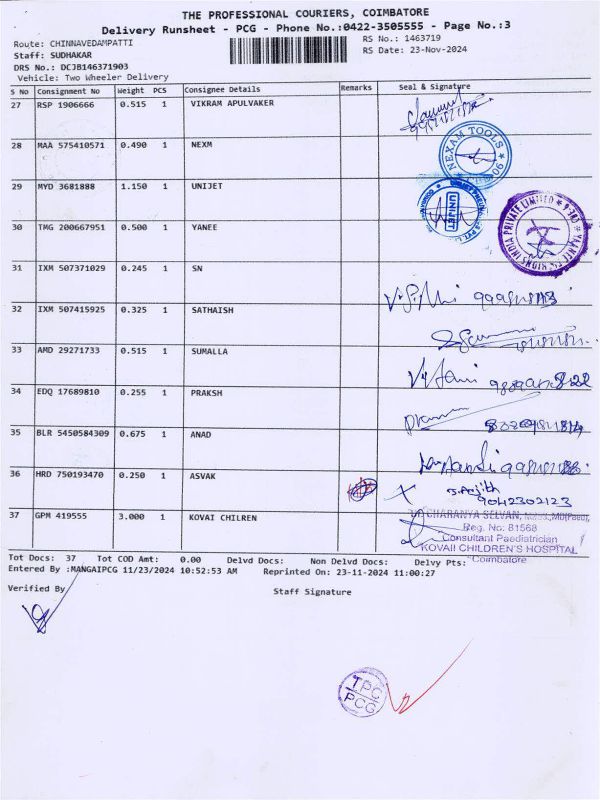 THE PROFESSIONAL COURIERS, COIMBATORE
Delivery Runsheet - PCG - Phone No.:0422-3505555 - Page No.:3
Route: CHINNAVEDAMPATTI
RS No.: 1463719
Staff: SUDHAKAR
RS Date: 23-Nov-2024
DRS No.: DCJB146371903
Vehicle: Two Wheeler Delivery
S No Consignment No Weight PCS Consignee Details Remarks Seal & Signature
27 RSP 1906666 0.515 1 VIKRAM APULVAKER
28 MAA 575410571 0.490 1 NEXM
NEXAM TOOLS
29 MYD 3681888 1.150 1 UNIJET
UNIJET
30 TMG 200667951 0.500 1 YANEE
INDIA PRIVATE LIMITED
31 IXM 507371029 0.245 1 SN
32 IXM 507415925 0.325 1 SATHAISH
33 AMD 29271733 0.515 1 SUMALLA
34 EDQ 17689810 0.255 1 PRAKSH
35 BLR 5450584309 0.675 1 ANAD
36 HRD 750193470 0.250 1 ASVAK
9042302123
37 GPM 419555 3.000 1 KOVAI CHILREN
CHARANYA SELVAN,
Reg. No: 81568
Consultant Paediatrician
KOVAII CHILDREN'S HOSPITAL
Coimbatore
Tot Docs: 37 Tot COD Amt: 0.00 Delvd Docs: Non Delvd Docs: Delvy Pts:
Entered By :MANGAIPCG 11/23/2024 10:52:53 AM Reprinted On: 23-11-2024 11:00:27
Verified By
Staff Signature
TPC
PCG